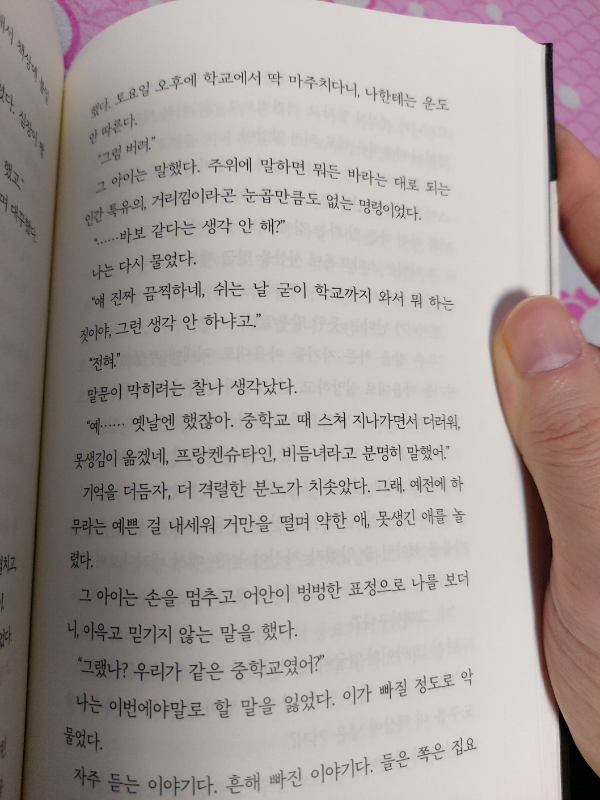 했다. 토요일 오후에 학교에서 딱 마주치다니, 나한테는 운도
안 따른다.
"그럼 버려."
그 아이는 말했다. 주위에 말하면 뭐든 바라는 대로 되는
인간 특유의, 거리낌이라곤 눈곱만큼도 없는 명령이었다.
"……바보 같다는 생각 안 해?"
나는 다시 물었다.
"얘 진짜 끔찍하네, 쉬는 날 굳이 학교까지 와서 뭐 하는
짓이야, 그런 생각 안 하냐고."
"전혀."
말문이 막히려는 찰나 생각났다.
"예…… 옛날엔 했잖아. 중학교 때 스쳐 지나가면서 더러워,
못생김이 옮겠네, 프랑켄슈타인, 비듬녀라고 분명히 말했어."
기억을 더듬자, 더 격렬한 분노가 치솟았다. 그래. 예전에 하
무라는 예쁜 걸 내세워 거만을 떨며 약한 애, 못생긴 애를 놀
렸다.
그 아이는 손을 멈추고 어안이 벙벙한 표정으로 나를 보더
니, 이윽고 믿기지 않는 말을 했다.
"그랬나? 우리가 같은 중학교였어?"
나는 이번에야말로 할 말을 잃었다. 이가 빠질 정도로 악
물었다.
자주 듣는 이야기다. 흔해 빠진 이야기다. 들은 쪽은 집요